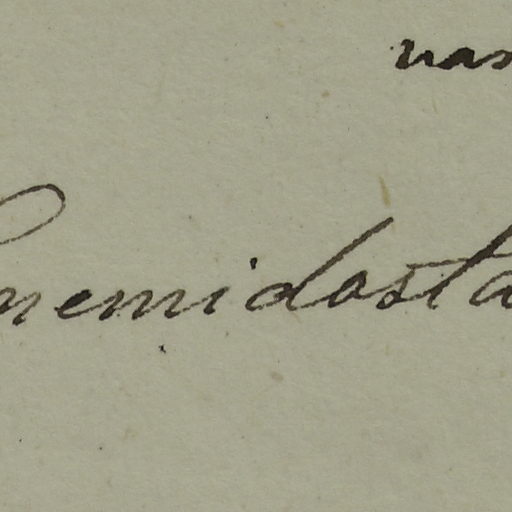 nas
Cnemidosta